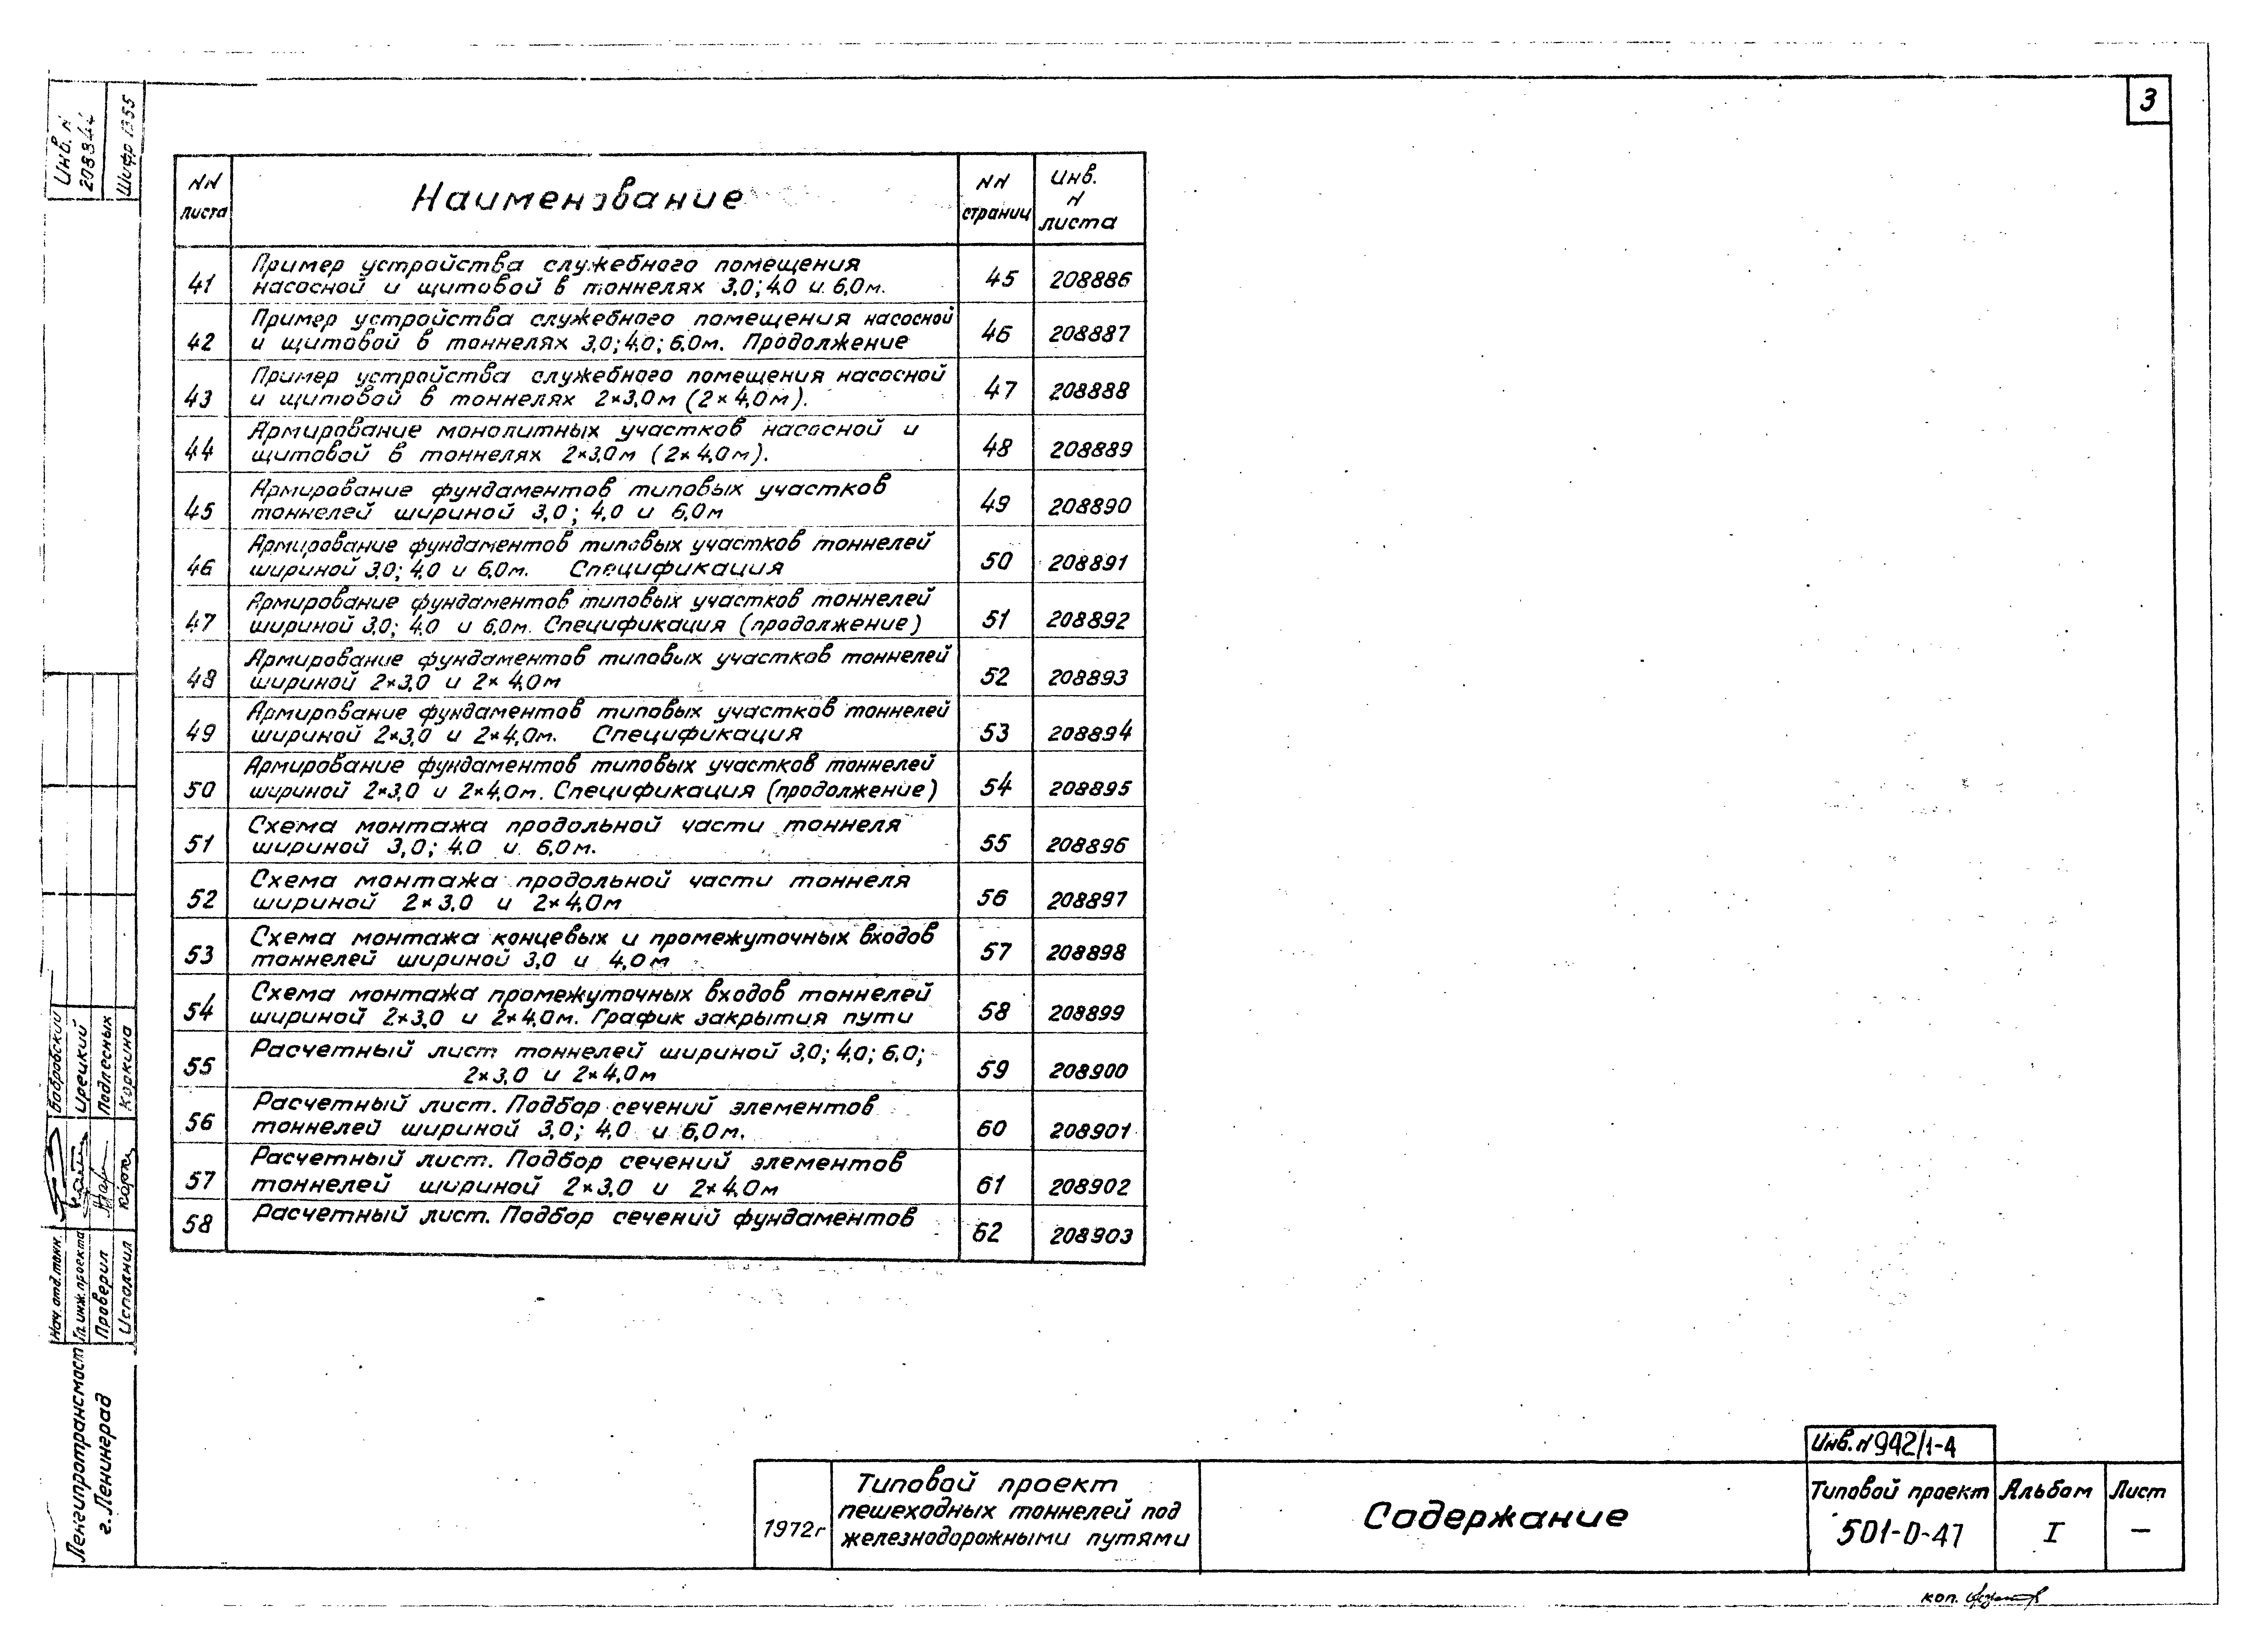 3
Инв. N
208844
Шифр 1355
NN
листа
Наименование
NN
страниц
Инв.
N
листа
41
Пример устройства служебного помещения
насосной и щитовой в тоннелях 3,0; 4,0 и 6,0м.
45
208886
42
Пример устройства служебного помещения насосной
и щитовой в тоннелях 3,0; 4,0; 6,0м. Продолжение
46
208887
43
Пример устройства служебного помещения насосной
и щитовой в тоннелях 2×3,0м (2×4,0м).
47
208888
44
Армирование монолитных участков насосной и
щитовой в тоннелях 2×3,0м (2×4,0м).
48
208889
45
Армирование фундаментов типовых участков
тоннелей шириной 3,0; 4,0 и 6,0м
49
208890
46
Армирование фундаментов типовых участков тоннелей
шириной 3,0; 4,0 и 6,0м. Спецификация
50
208891
47
Армирование фундаментов типовых участков тоннелей
шириной 3,0; 4,0 и 6,0м. Спецификация (продолжение)
51
208892
48
Армирование фундаментов типовых участков тоннелей
шириной 2×3,0 и 2×4,0м
52
208893
49
Армирование фундаментов типовых участков тоннелей
шириной 2×3,0 и 2×4,0м. Спецификация
53
208894
50
Армирование фундаментов типовых участков тоннелей
шириной 2×3,0 и 2×4,0м. Спецификация (продолжение)
54
208895
51
Схема монтажа продольной части тоннеля
шириной 3,0; 4,0 и 6,0м.
55
208896
52
Схема монтажа продольной части тоннеля
шириной 2×3,0 и 2×4,0м
56
208897
53
Схема монтажа концевых и промежуточных входов
тоннелей шириной 3,0 и 4,0м
57
208898
54
Схема монтажа промежуточных входов тоннелей
шириной 2×3,0 и 2×4,0м. График закрытия пути
58
208899
55
Расчетный лист тоннелей шириной 3,0; 4,0; 6,0;
2×3,0 и 2×4,0м
59
208900
56
Расчетный лист. Подбор сечений элементов
тоннелей шириной 3,0; 4,0 и 6,0м.
60
208901
57
Расчетный лист. Подбор сечений элементов
тоннелей шириной 2×3,0 и 2×4,0м
61
208902
58
Расчетный лист. Подбор сечений фундаментов
62
208903
Нач. отд. тонн.
Бобровский
Гл. инж. проекта
Ирецкий
Проверил
Подлесных
Исполнил
Каркина
Ленгипротрансмост
г. Ленинград
1972г
Типовой проект
пешеходных тоннелей под
железнодорожными путями
Содержание
Инв. N 942/1-4
Типовой проект
501-0-47
Альбом
I
Лист
—
коп.